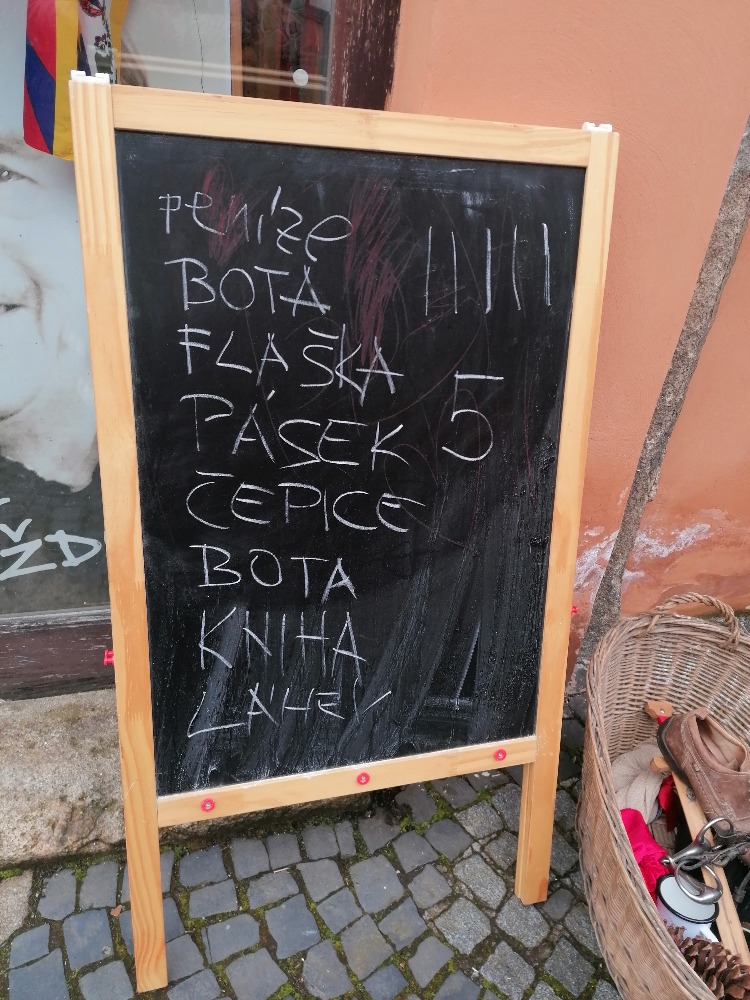 peníze
BOTA
FLAŠKA
PÁSEK
ČEPICE
BOTA
KNIHA
LÁHEV
|||||
5
ŽD